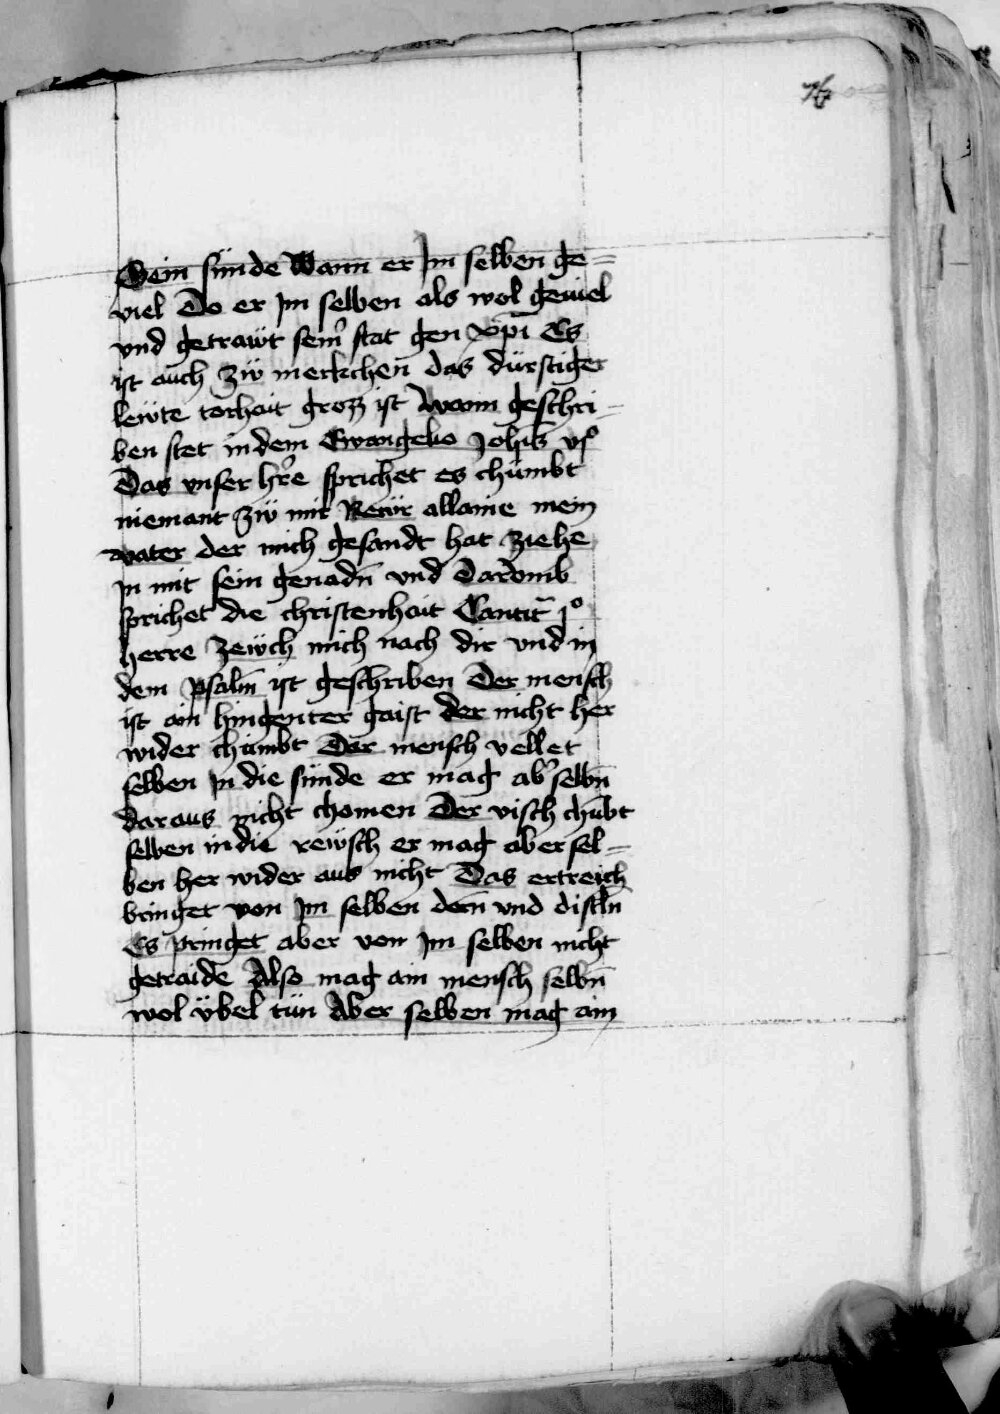 76
Sein sünde Wann er Im selben ge=
viel Do er Im selben als wol geuiel
vnd getrawt sein̄ stat gen xp̄i Es
ist auch zw̎ merkchen das dürstiger
lewte torhait grozz ist Wann geschri=
ben stet in dem Ewangelio Joh̄is vjº
Das vnser h're sprichet es chümbt
niemant zw̎ mir Newr allaine mein
vater der mich gesandt hat ziehe
in mit sein genadn̄ vnd Darumb
sprichet die christenhait Cantic̄ jº
herre zewch mich nach dir vnd in
dem psalm̄ ist geschriben Der mensch
ist ain hingenter gaist der nicht her
wider chümbt Der mensch vellet
selben in die sünde er mag ab' selbn̄
daraus nicht chomen Der visch chūbt
selben in die rewsch er mag aber sel=
ben her wider aus nicht Das ertreich
bringet von Im selben dorn̄ vnd distln
Es pringet aber von Im selben nicht
getraide Also mag ain mensch selbn̄
wol ÿbel tün Aber selben mag ain